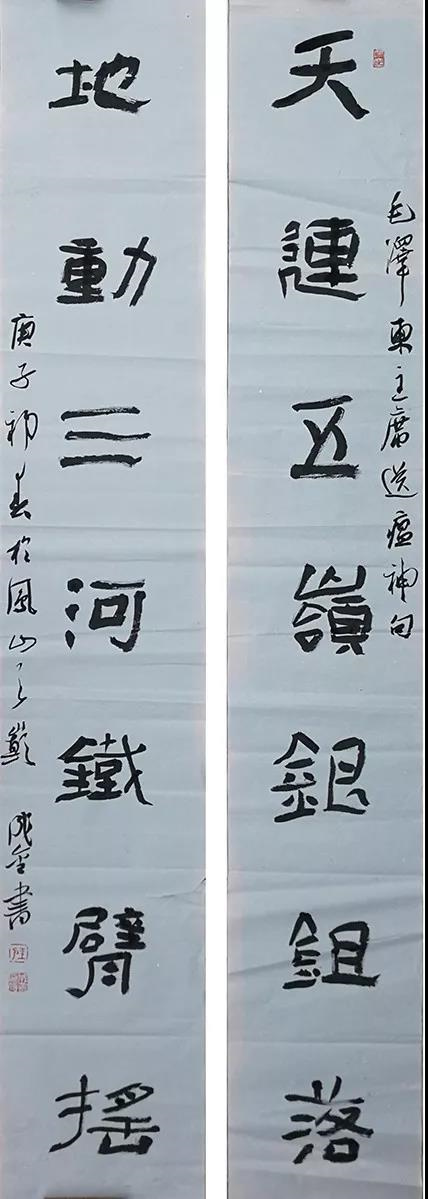 毛澤東主席送瘟神句
天連五嶺銀鉏落
地動三河鐵臂搖
庚子初春於鳳山之巔 書